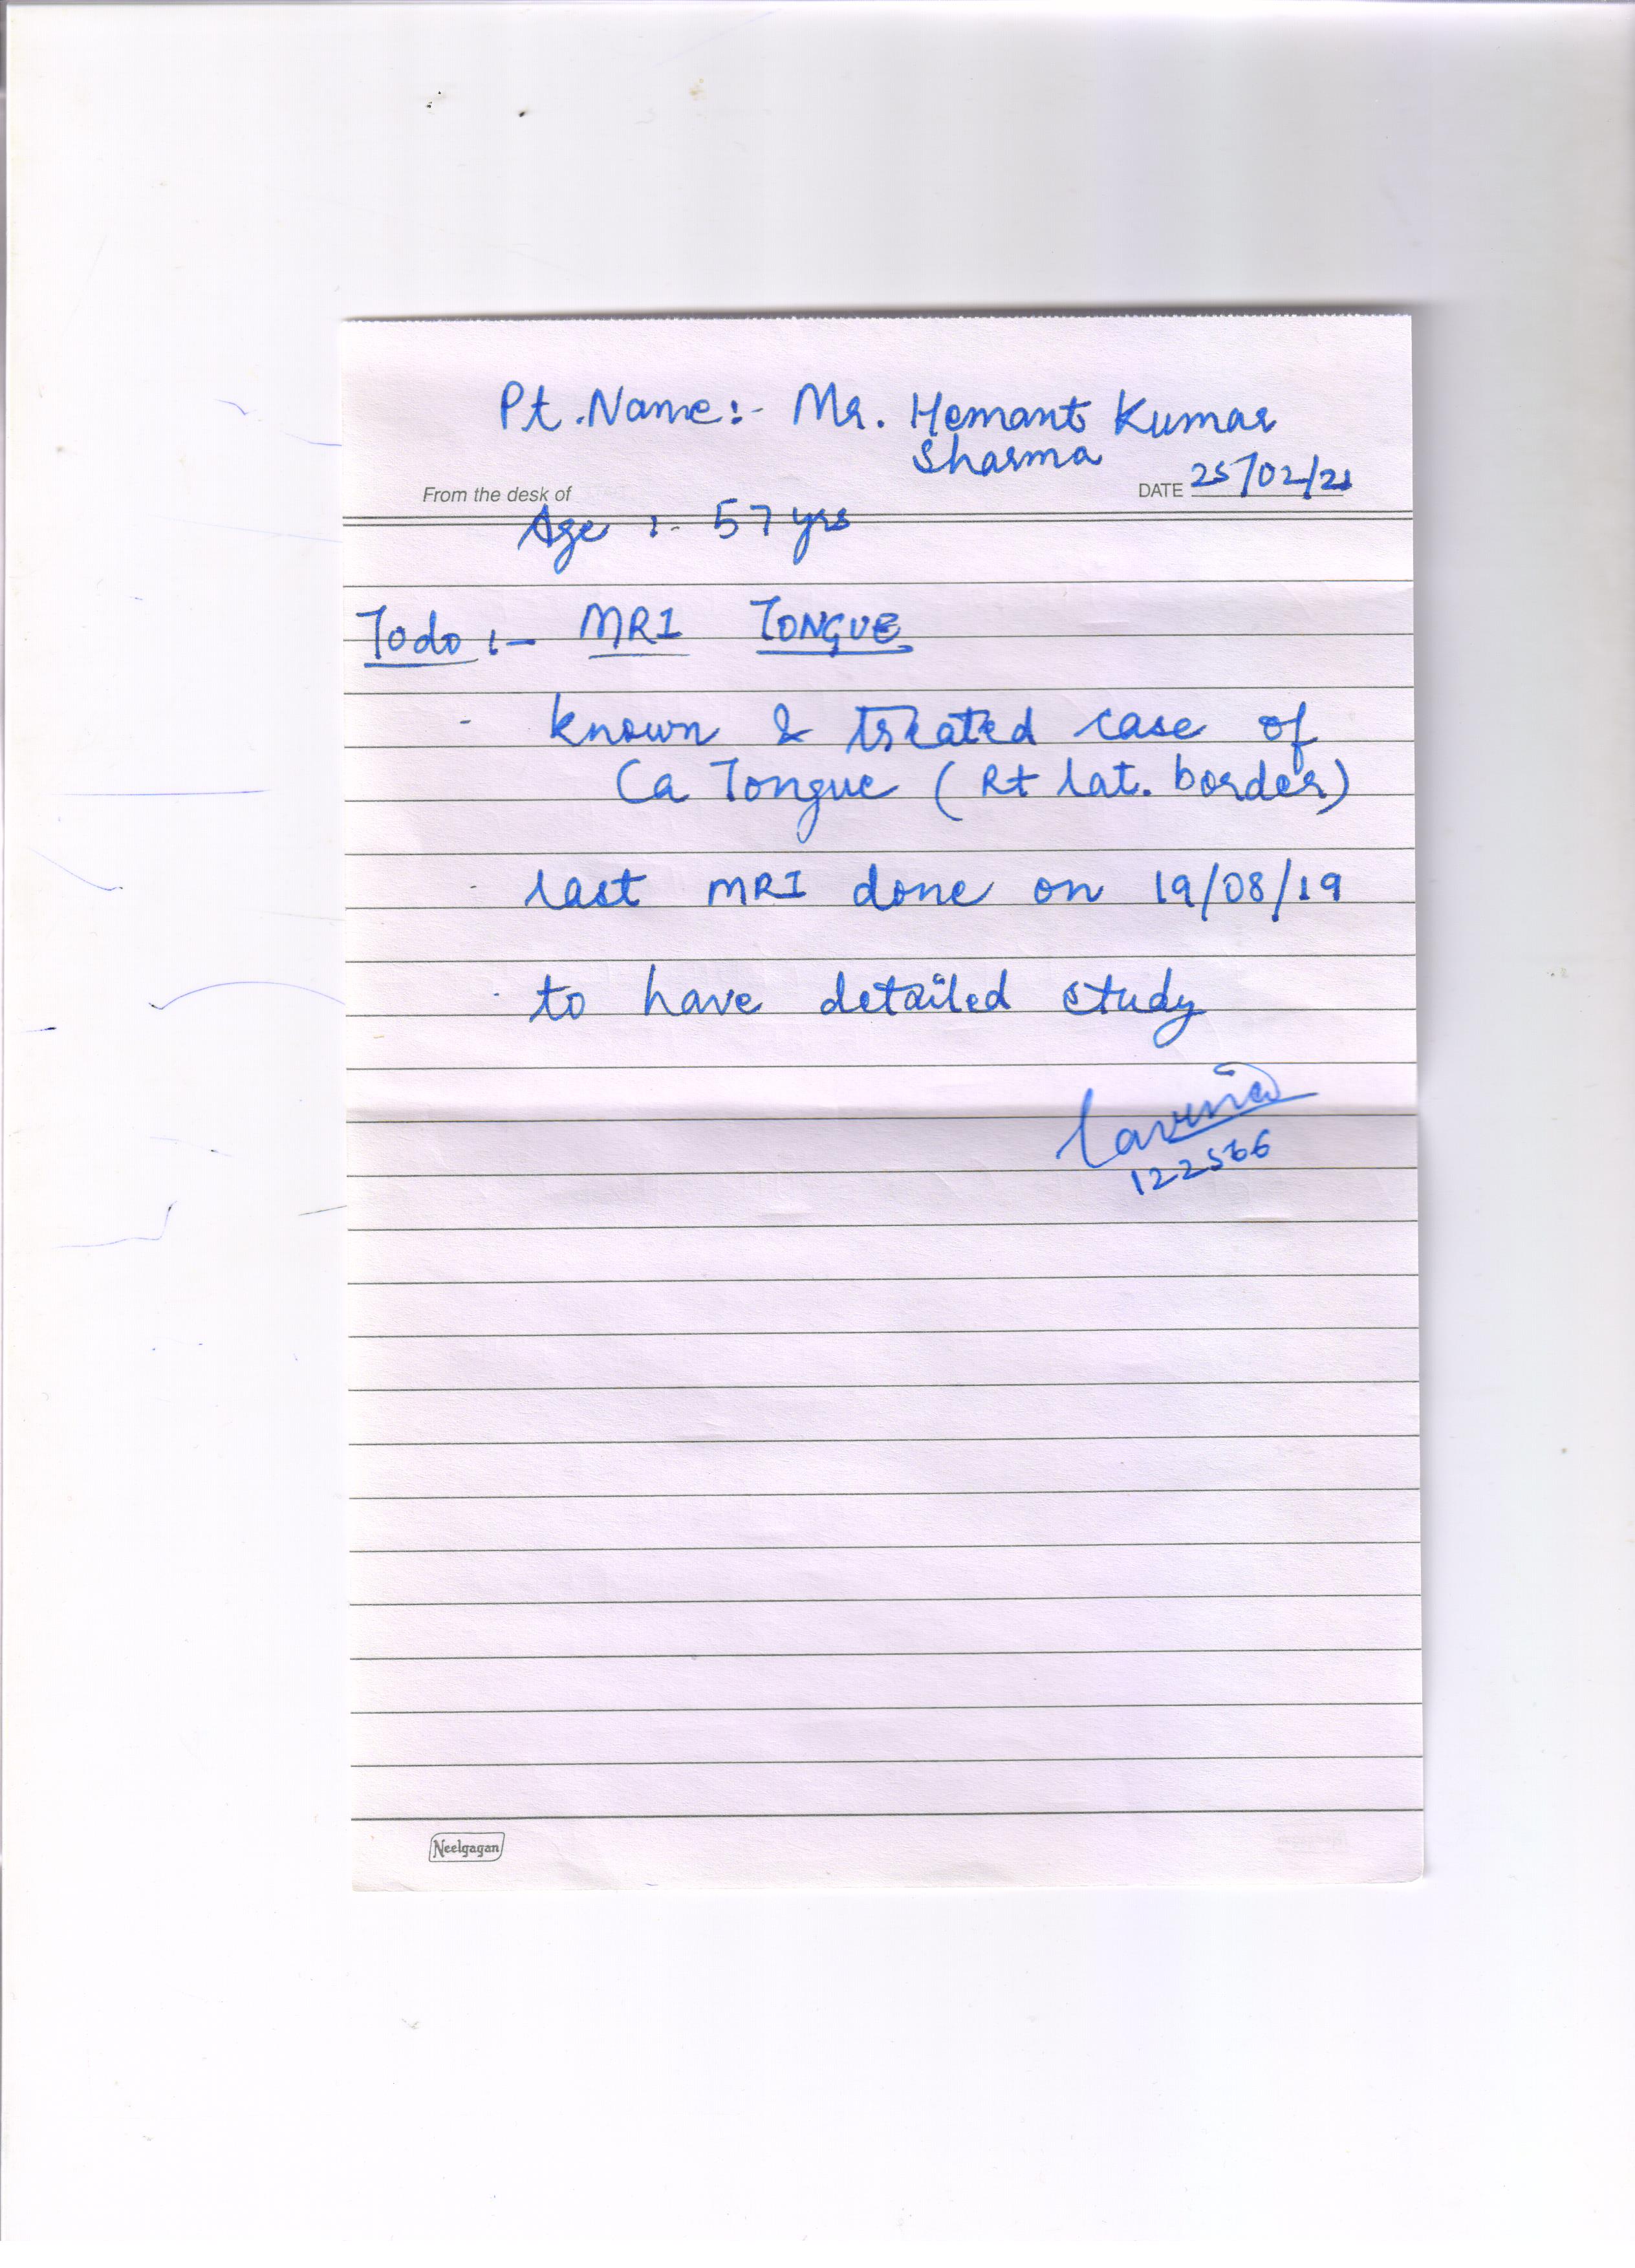 Pt. Name:- Mr. Hemant Kumar
Sharma
From the desk of
DATE 25/02/21
Age :- 57 yrs
Todo :- MRI TONGUE
- known & treated case of
Ca Tongue (Rt lat. border)
- last MRI done on 19/08/19
- to have detailed study
122566
Neelgagan